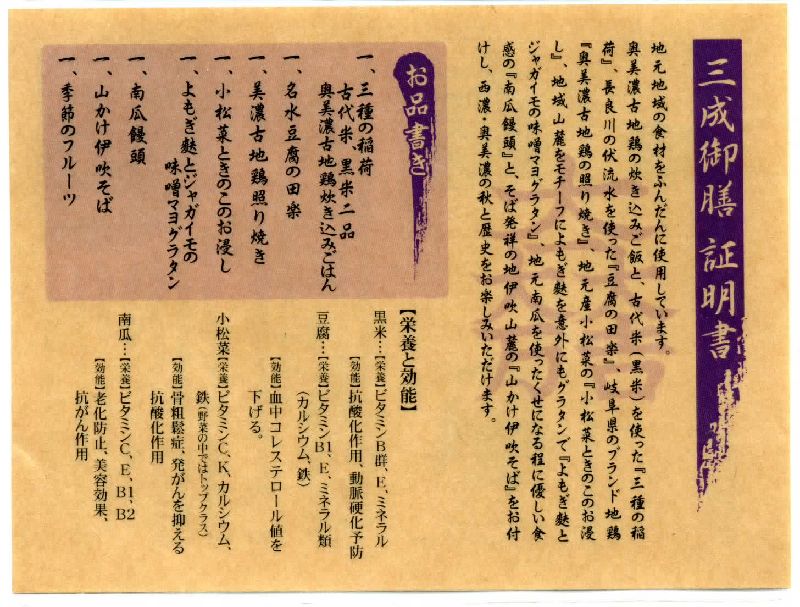 三成御膳 証明書
地元地域の食材をふんだんに使用しています。
奥美濃古地鶏の炊き込みご飯と、古代米(黒米)を使った『三種の稲
荷』、長良川の伏流水を使った『豆腐の田楽』、岐阜県のブランド地鶏
『奥美濃古地鶏の照り焼き』、地元産小松菜の『小松菜ときのこのお浸
し』、地域山麓をモチーフによもぎ麩を意外にもグラタンで『よもぎ麩と
ジャガイモの味噌マヨグラタン』、地元南瓜を使ったくせになる程に優しい食
感の『南瓜饅頭』と、そば発祥の地伊吹山麓の『山かけ伊吹そば』をお付
けし、西濃・奥美濃の秋と歴史をお楽しみいただけます。
お品書き
一、三種の稲荷
古代米 黒米二品
奥美濃古地鶏炊き込みごはん
一、名水豆腐の田楽
一、美濃古地鶏照り焼き
一、小松菜ときのこのお浸し
一、よもぎ麩とジャガイモの
味噌マヨグラタン
一、南瓜饅頭
一、山かけ伊吹そば
一、季節のフルーツ
【栄養と効能】
黒米…【栄養】ビタミンB群、E、ミネラル
【効能】抗酸化作用、動脈硬化予防
豆腐…【栄養】ビタミンB1、E、ミネラル類
(カルシウム、鉄)
【効能】血中コレステロール値を
下げる。
小松菜【栄養】ビタミンC、K、カルシウム、
鉄(野菜の中ではトップクラス)
【効能】骨粗鬆症、発がんを抑える
抗酸化作用
南瓜…【栄養】ビタミンC、E、B1、B2
【効能】老化防止、美容効果、
抗がん作用